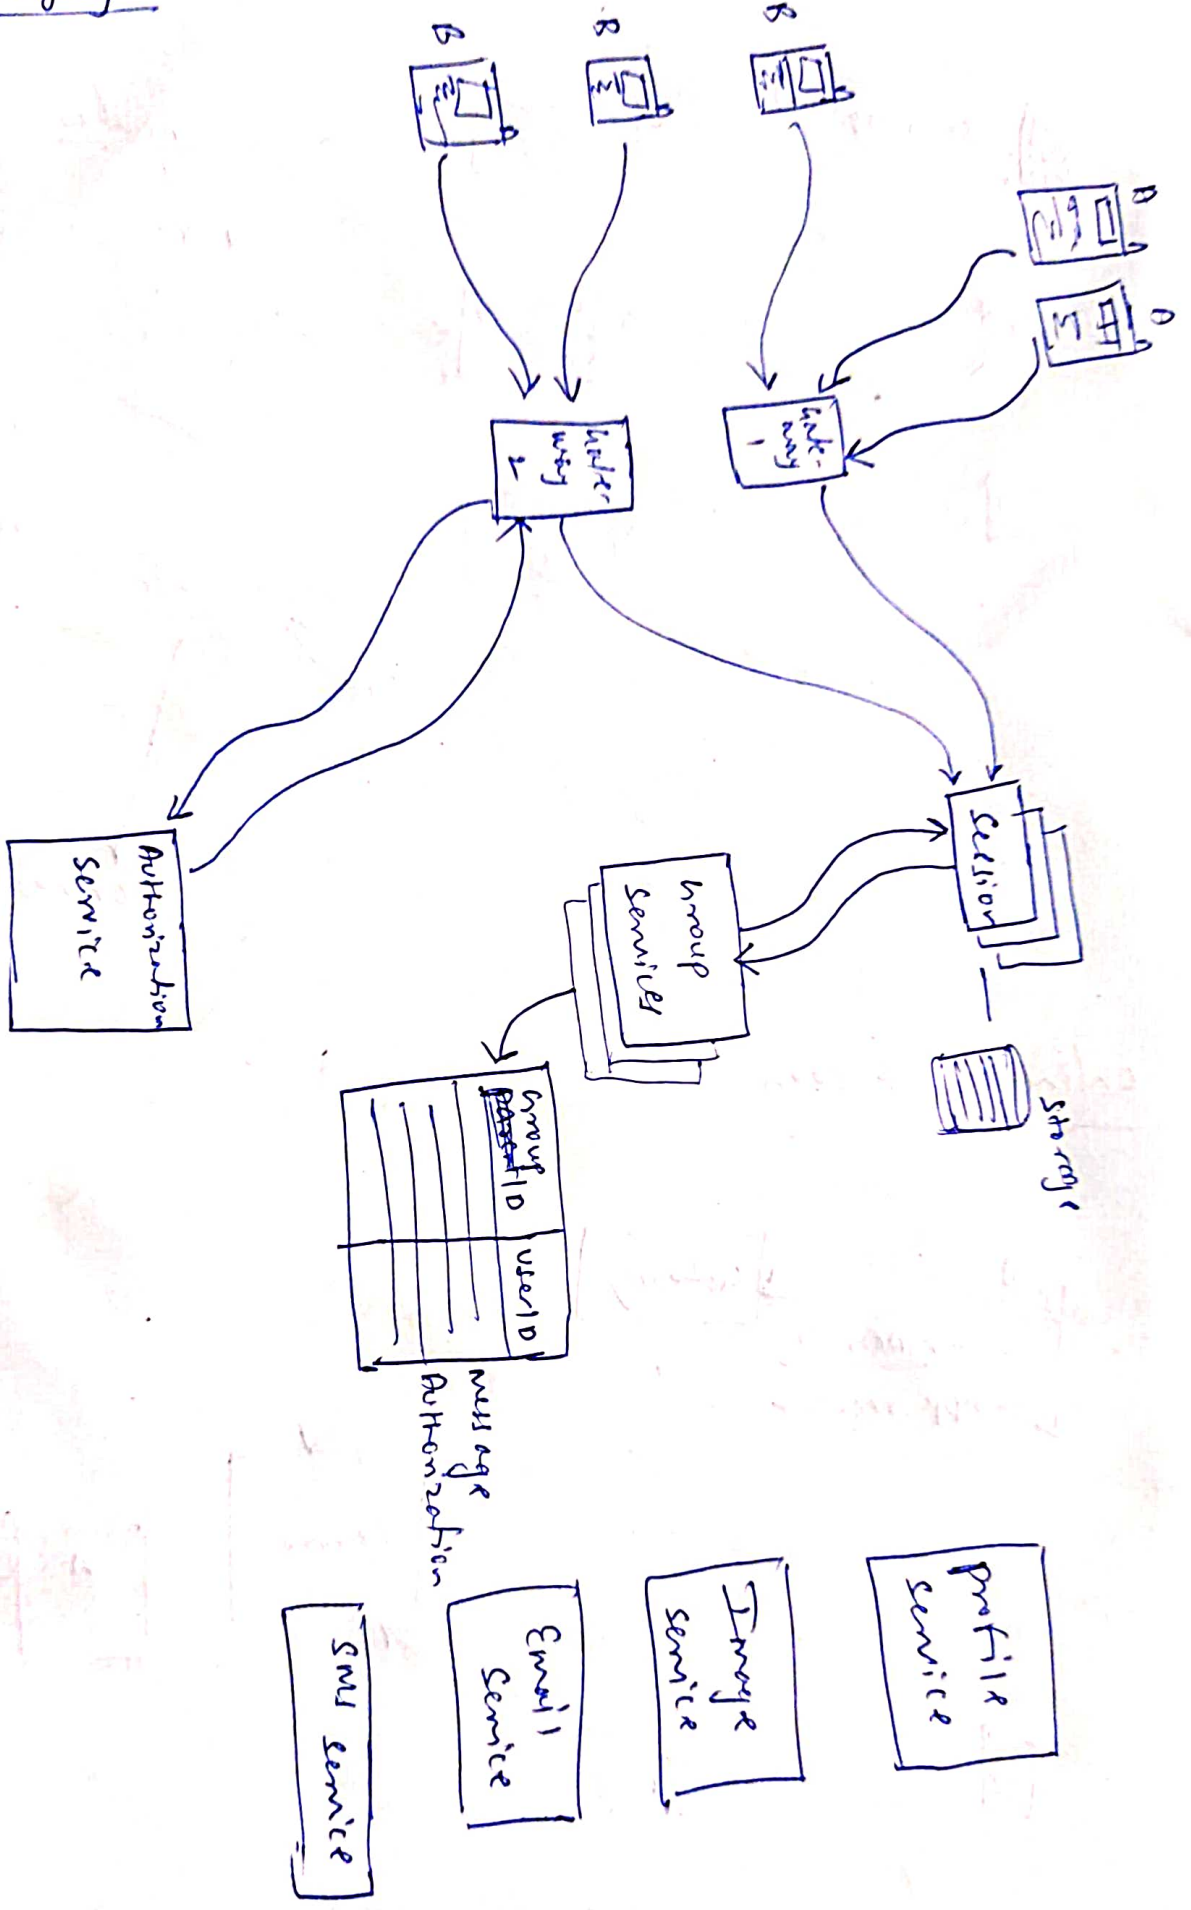 Gate-
way
1
Gate
way
2
Session
Storage
Group
services
Group
ID
userID
message
Authorization
Authorization
service
profile
service
Image
service
Email
service
SMS service